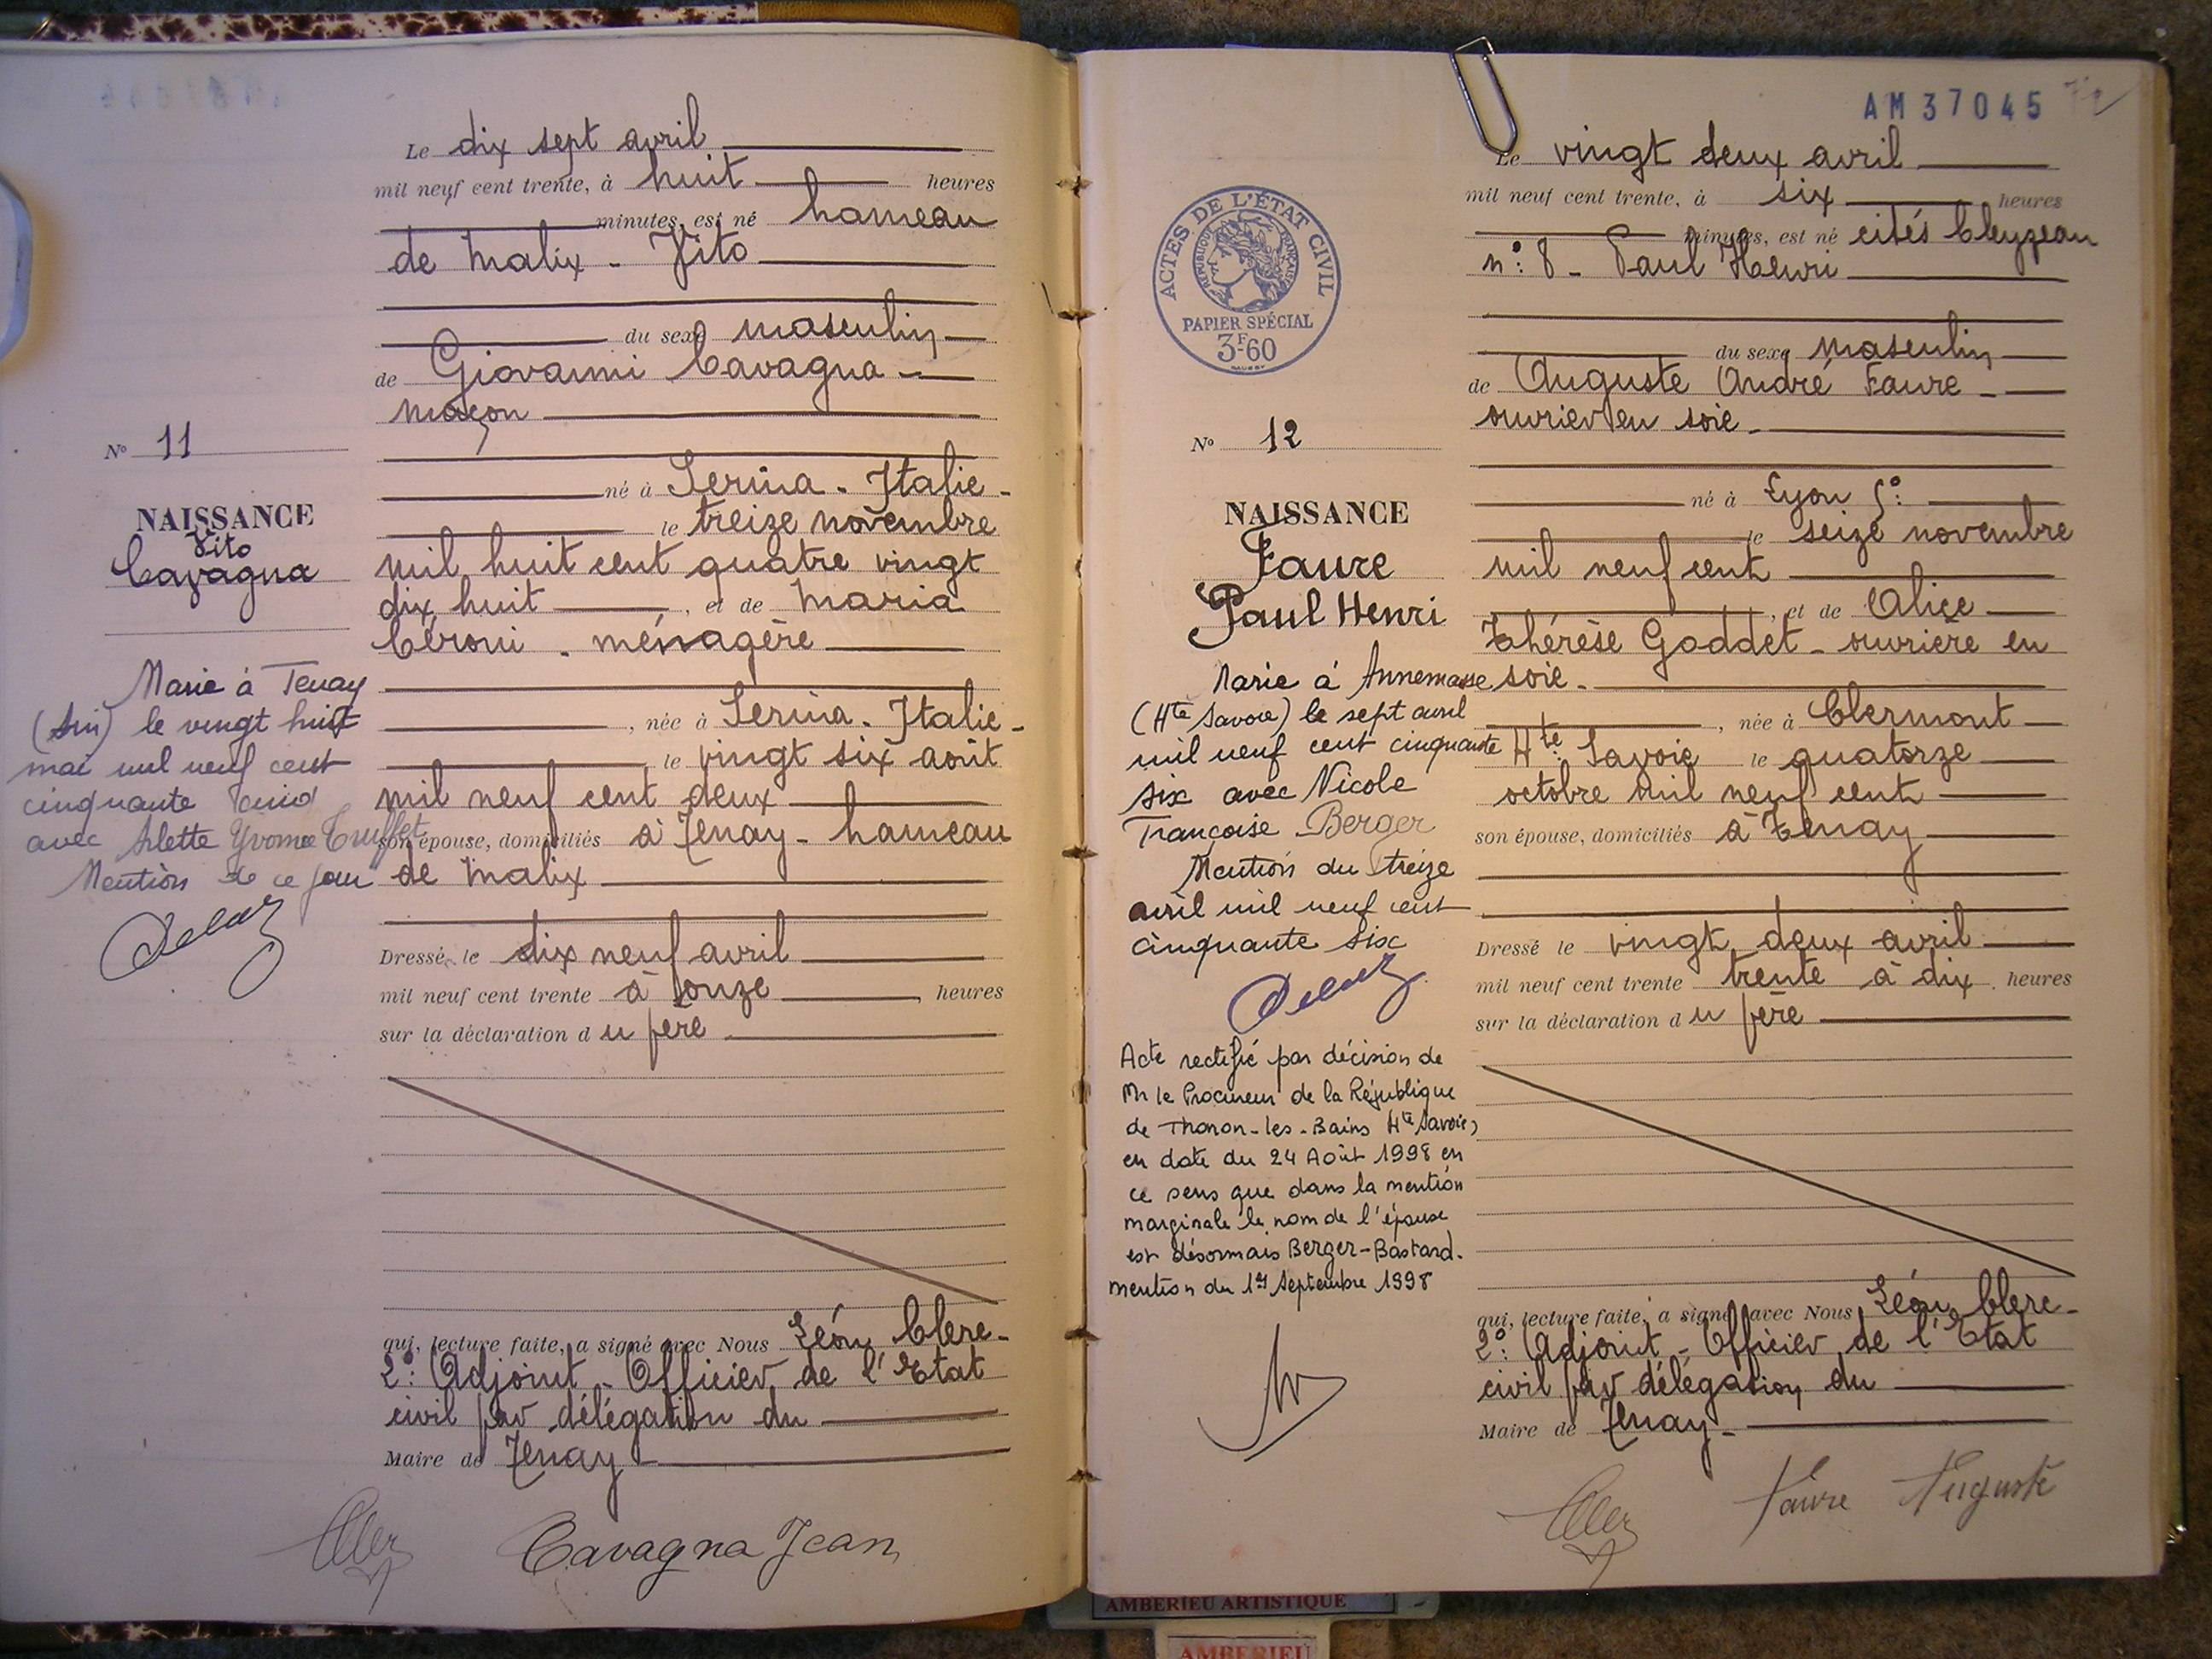 Le dix sept avril
mil neuf cent trente, à huit heures
minutes, est né hameau
de Malix - Vito
du sexe masculin
de Giovanni Cavagna -
maçon
N° 11
né à Serina - Italie -
le treize novembre
NAISSANCE
Vito
Cavagna
mil huit cent quatre vingt
dix huit, et de Maria
Céroni - ménagère
Marié à Tenay
(Ain) le vingt huit
mai mil neuf cent
cinquante cinq
avec Arlette Yvonne Truffet
Mention de ce jour
née à Serina - Italie -
le vingt six août
mil neuf cent deux
son épouse, domiciliés à Tenay - hameau
de Malix
Dressé le dix neuf avril
mil neuf cent trente à onze, heures
sur la déclaration du père
qui, lecture faite, a signé avec Nous Léon Clerc -
2°: Adjoint - Officier de l'Etat
civil par délégation du
Maire de Tenay
Cavagna Jean
AM37045
Le vingt deux avril
mil neuf cent trente, à six heures
minutes, est né cités Cleyzeau
n°: 8 - Paul Henri
ACTES DE L'ÉTAT CIVIL
RÉPUBLIQUE FRANÇAISE
PAPIER SPÉCIAL
3F.60
du sexe masculin
de Auguste André Faure -
ouvrier en soie -
N° 12
né à Lyon 5°:
le seize novembre
NAISSANCE
Faure
Paul Henri
mil neuf cent
, et de Alice
Thérèse Goddet - ouvrière en
soie -
Marié à Annemasse
(Hte Savoie) le sept avril
mil neuf cent cinquante
six avec Nicole
Françoise Berger
Mention du treize
avril mil neuf cent
cinquante six
, née à Clermont
Hte Savoie le quatorze
octobre mil neuf cent
son épouse, domiciliés à Tenay
Dressé le vingt deux avril
mil neuf cent trente trente à dix, heures
sur la déclaration du père
Acte rectifié par décision de
Mr le Procureur de la République
de Thonon-les-Bains Hte Savoie)
en date du 24 Août 1998 en
ce sens que dans la mention
marginale le nom de l'épouse
est désormais Berger-Bastard.
mention du 1er Septembre 1998
qui, lecture faite, a signé avec Nous Léon Clerc -
2°: Adjoint - Officier de l'Etat
civil par délégation du
Maire de Tenay -
Faure Auguste
AMBERIEU ARTISTIQUE
AMBERIEU